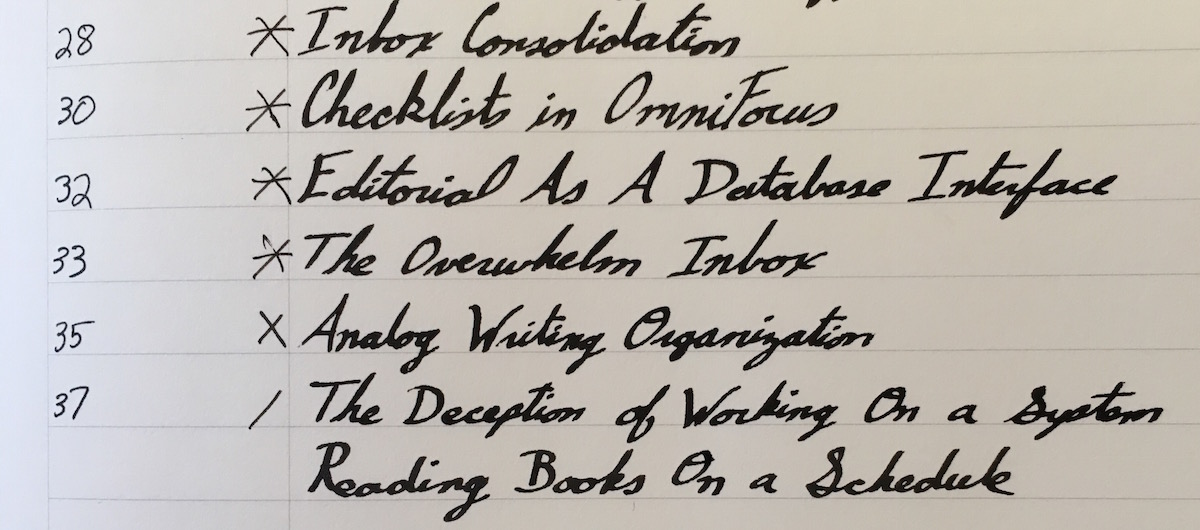 28 * Inbox Consolidation
30 * Checklists in OmniFocus
32 * Editorial As A Database Interface
33 * The Overwhelm Inbox
35 X Analog Writing Organization
37 / The Deception of Working On a System
Reading Books On a Schedule